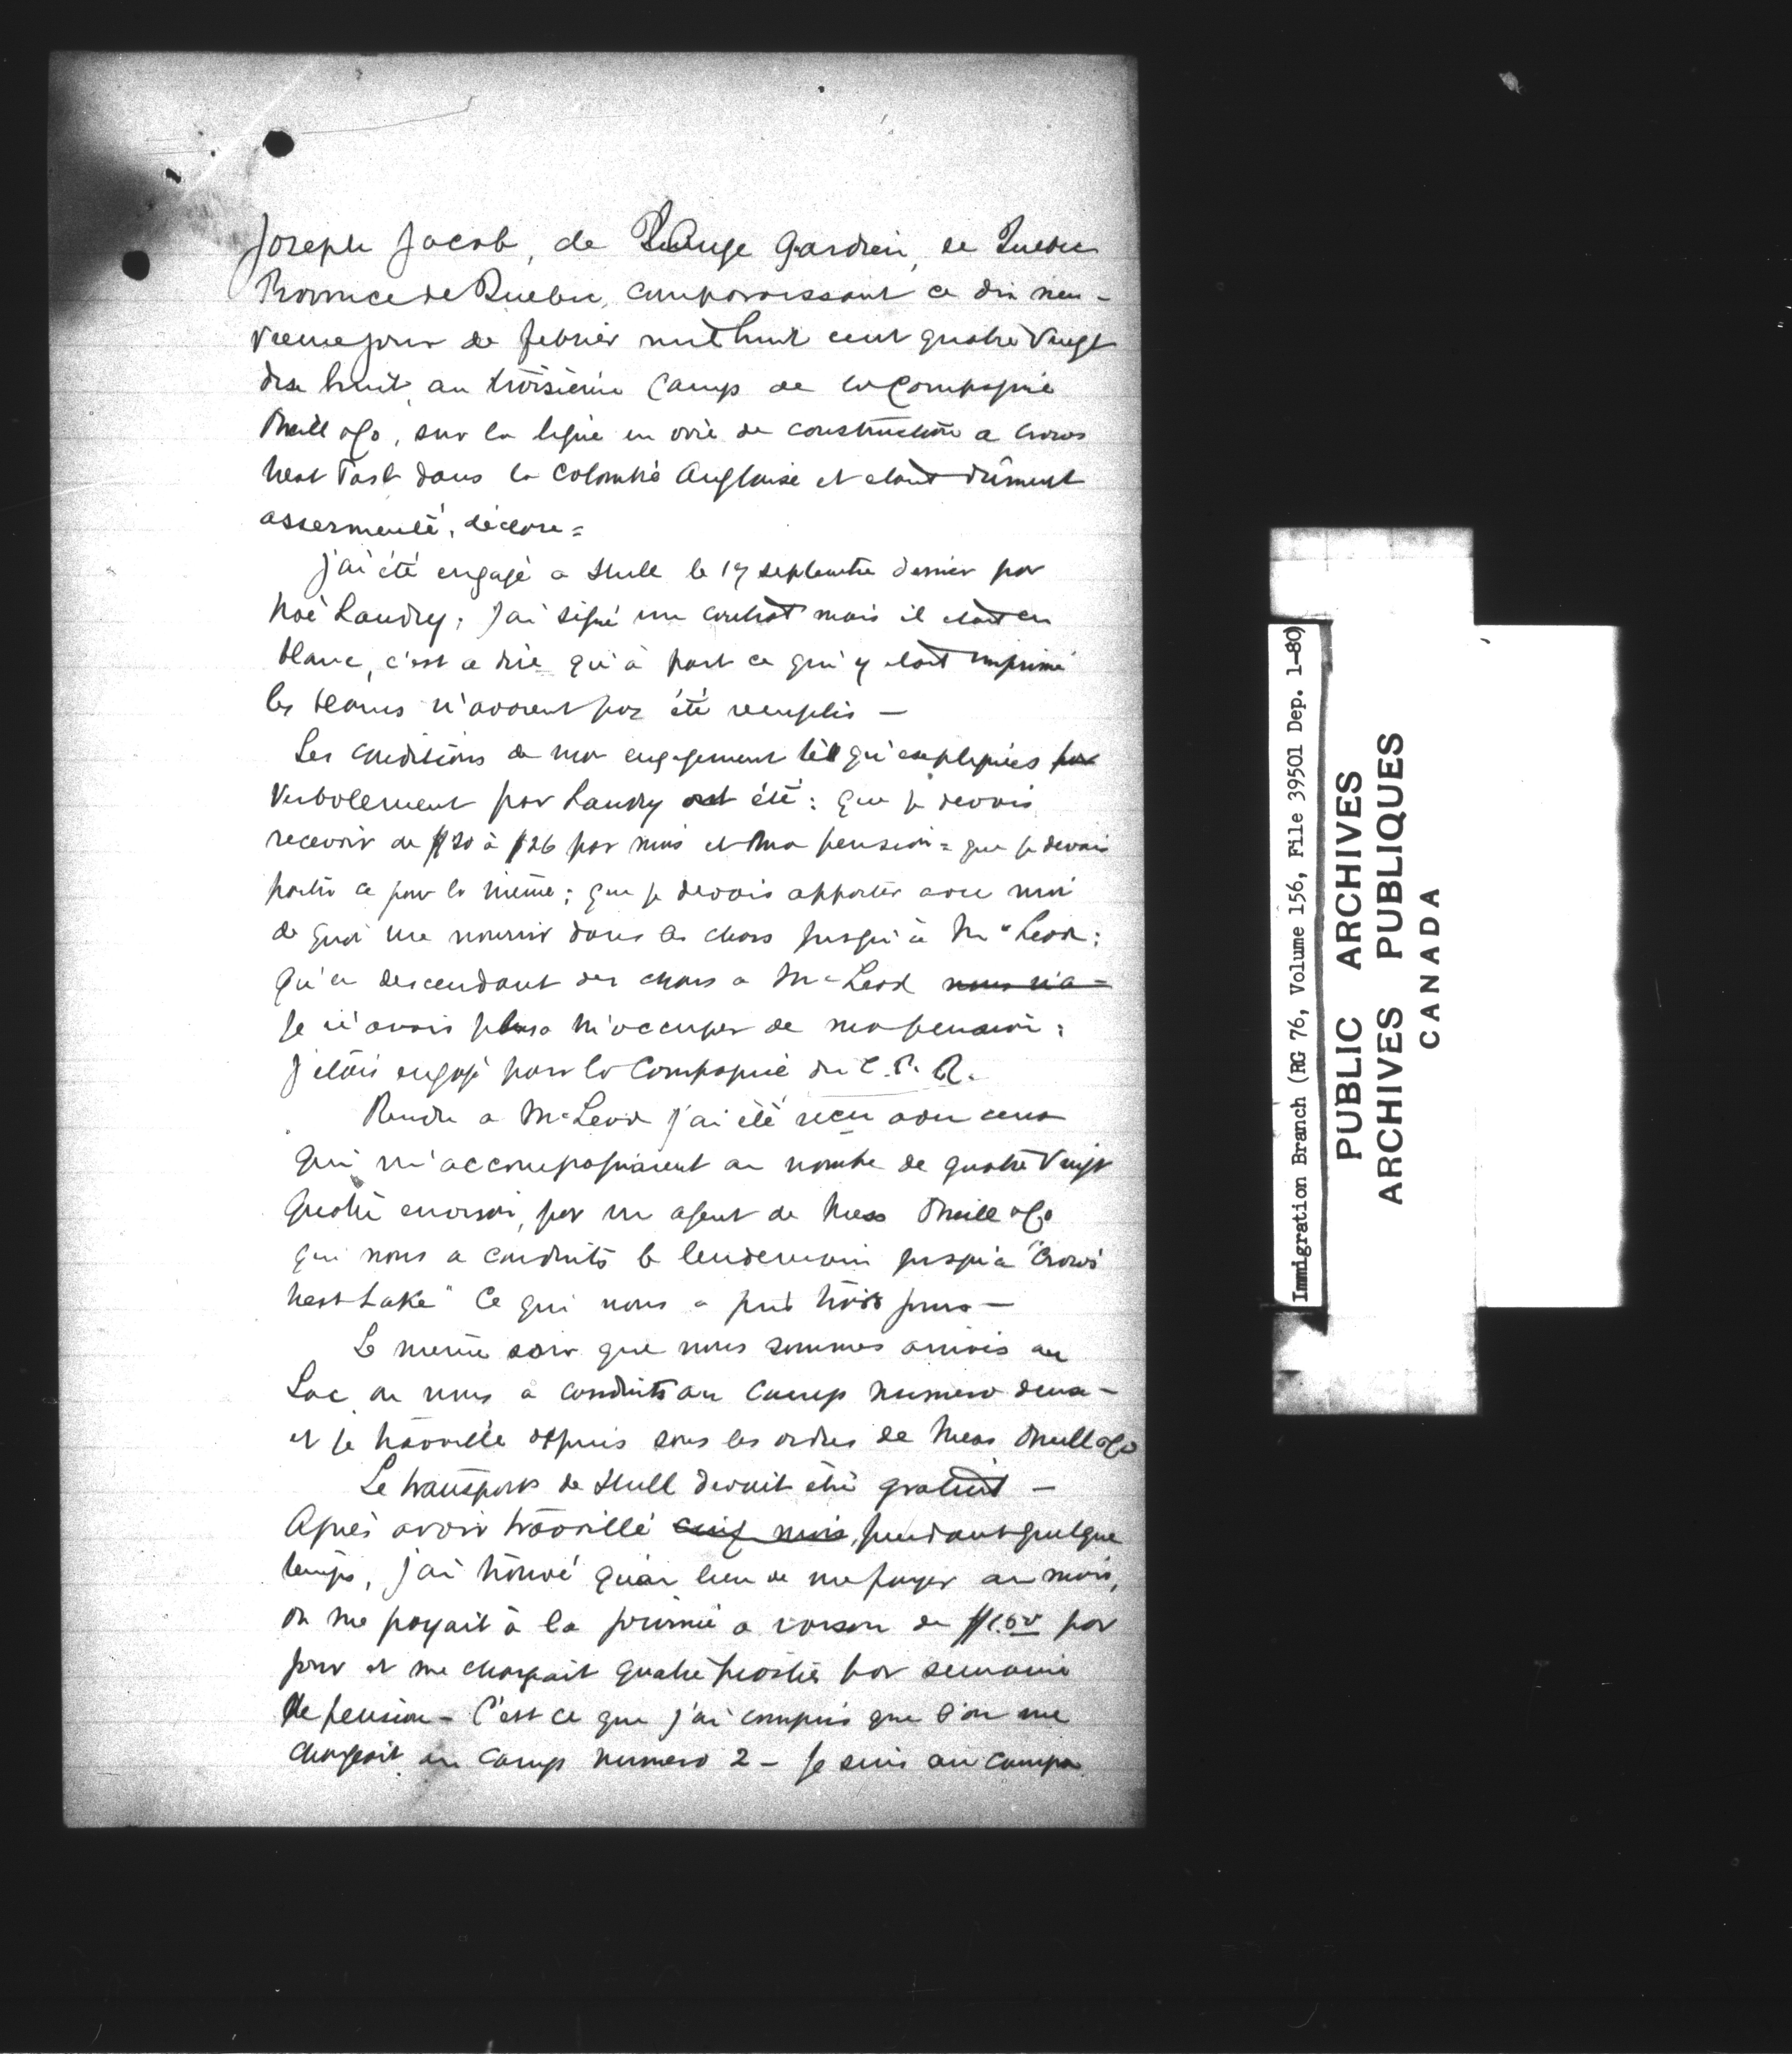 Joseph Jacob, de L'Ange Gardien, de Québec
Province de Quebec, comparaissant ce dix neu-
vieme jour de fevrier mil huit cent quatre vingt
dix huit, au troisième Camp de la Compagnie
& Co, sur la ligne en voie de construction a Crows
Nest Pass dans la Colombie Anglaise et étant dûment
assermenté, déclare =
J'ai été engagé a Hull le 17 septembre dernier par
Noé Landry; J'ai signé un contrat mais il etait en
blanc, c'est a dire qu'à part ce qui y etait imprimé
les blancs n'avaient pas été remplis —
Les conditions de mon engagement tel qu'expliquées par
verbalement par Landry ont été: que je devais
recevoir de $20 à $26 par mois et ma pension = que je devais
partir ce jour la même; que je devais apporter avec moi
de quoi me nourrir dans les chars jusqu'à McLeod;
qu'en descendant des chars a McLeod nous n'a-
je n'avais plus a m'occuper de ma pension;
j'étais engagé pour la Compagnie du C. P. R.
Rendu a McLeod j'ai été reçu avec ceux
qui m'accompagnaient au nombre de quatre vingt
quatre environ, par un agent de Mess & Co
qui nous a conduits le lendemain jusqu'a "Crows
nest Lake" Ce qui nous a pris trois jours —
Le même soir que nous sommes arrivés au
Lac on nous a conduits au Camp numero deux —
et je travaille depuis sous les ordres de Mess & Co
Le transport de Hull devait être gratuit —
Après avoir travaillé cinq mois, pendant quelque
temps, j'ai trouvé qu'au lieu de me payer au mois,
on me payait à la journée a raison de $1.50 par
jour et me chargeait quatre piastres par semaine
de pension — C'est ce que j'ai compris que l'on me
chargeait au camp numero 2 — Je suis au camp
Immigration Branch (RG 76, Volume 156, File 39501 Dep. 1-80)
PUBLIC ARCHIVES
ARCHIVES PUBLIQUES
CANADA